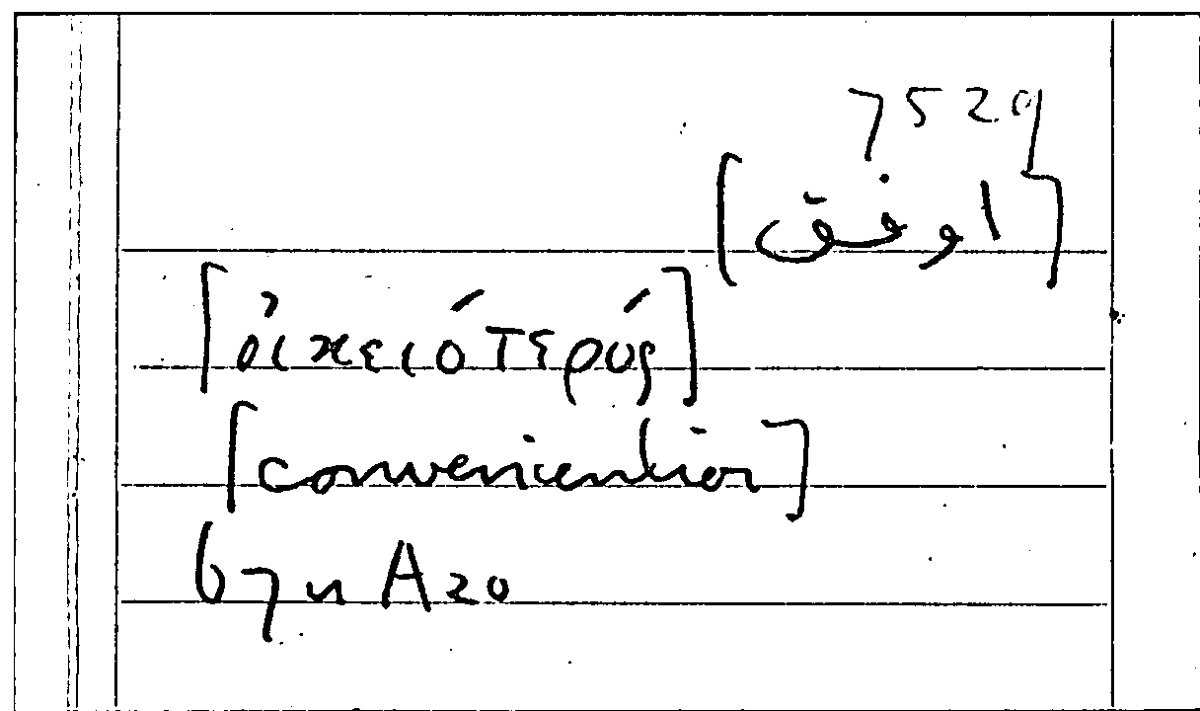 7529
[اوفق]
[ὀικειότερός]
[convenientior]
67 u A20